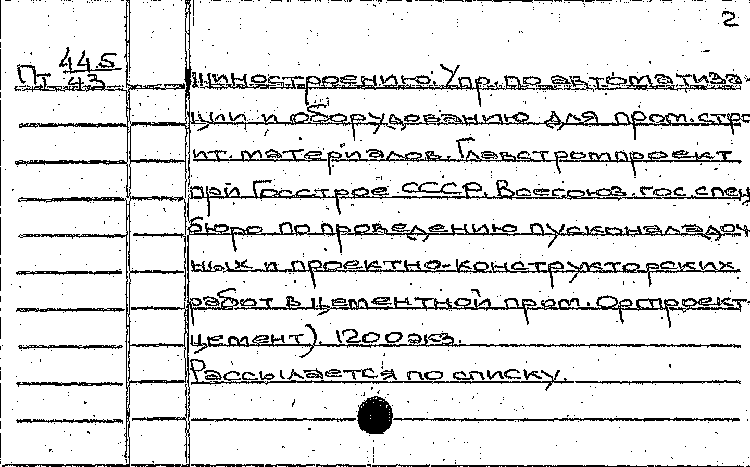 2
Пт 445/43
шиностроению. Упр. по автоматиза-
ции и оборудованию для пром. стро
ит. материалов. Главстромпроект
при Госстрое СССР. Всесоюз. гос. спец
бюро по проведению пусконаладоч
ных и проектно-конструкторских
работ в цементной пром. Оргпроект
цемент). 1200 экз.
Рассылается по списку.